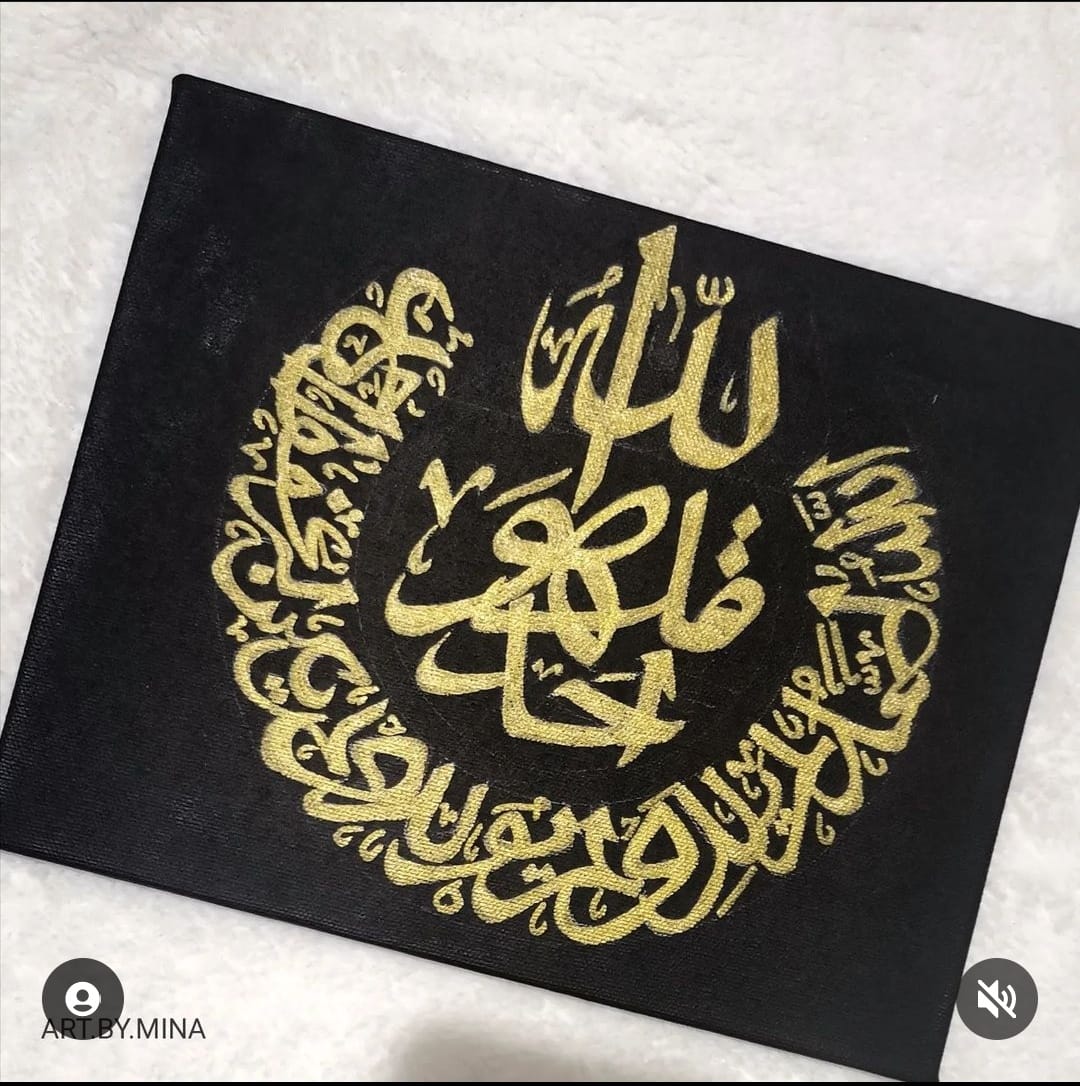 قل هو الله أحد
الله الصمد لم يلد ولم يولد ولم يكن له كفوا أحد
ART.BY.MINA